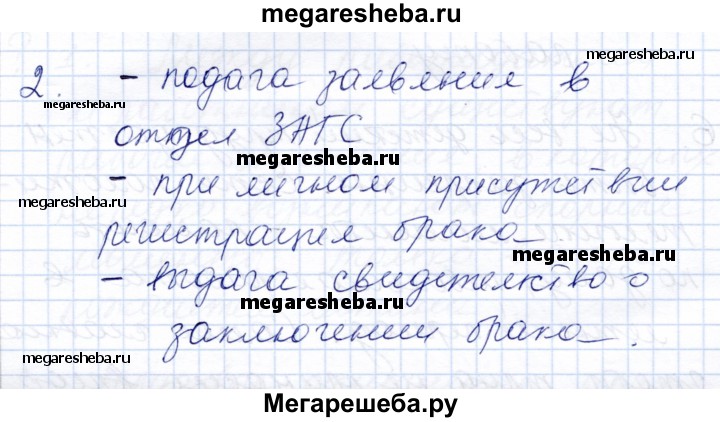 megaresheba.ru
megaresheba.ru
2. - подача заявления в
megaresheba.ru
отдел ЗАГС
megaresheba.ru
- при личном присутствии
megaresheba.ru
регистрация брака
megaresheba.ru
- выдача свидетельство о
megaresheba.ru
заключении брака.
megaresheba.ru
Мегарешеба.ру